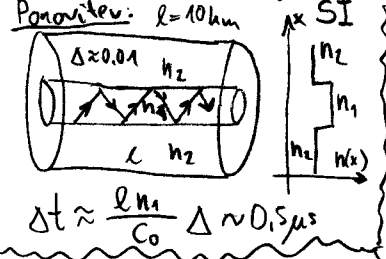 Ponovitev: l = 10 km
SI
x
Δ ≈ 0.01
n₂
n₂
n₁
n₁
l n₂
n₂ n(x)
Δt ≈ l n₁ / C₀ Δ ~ 0,5 μs